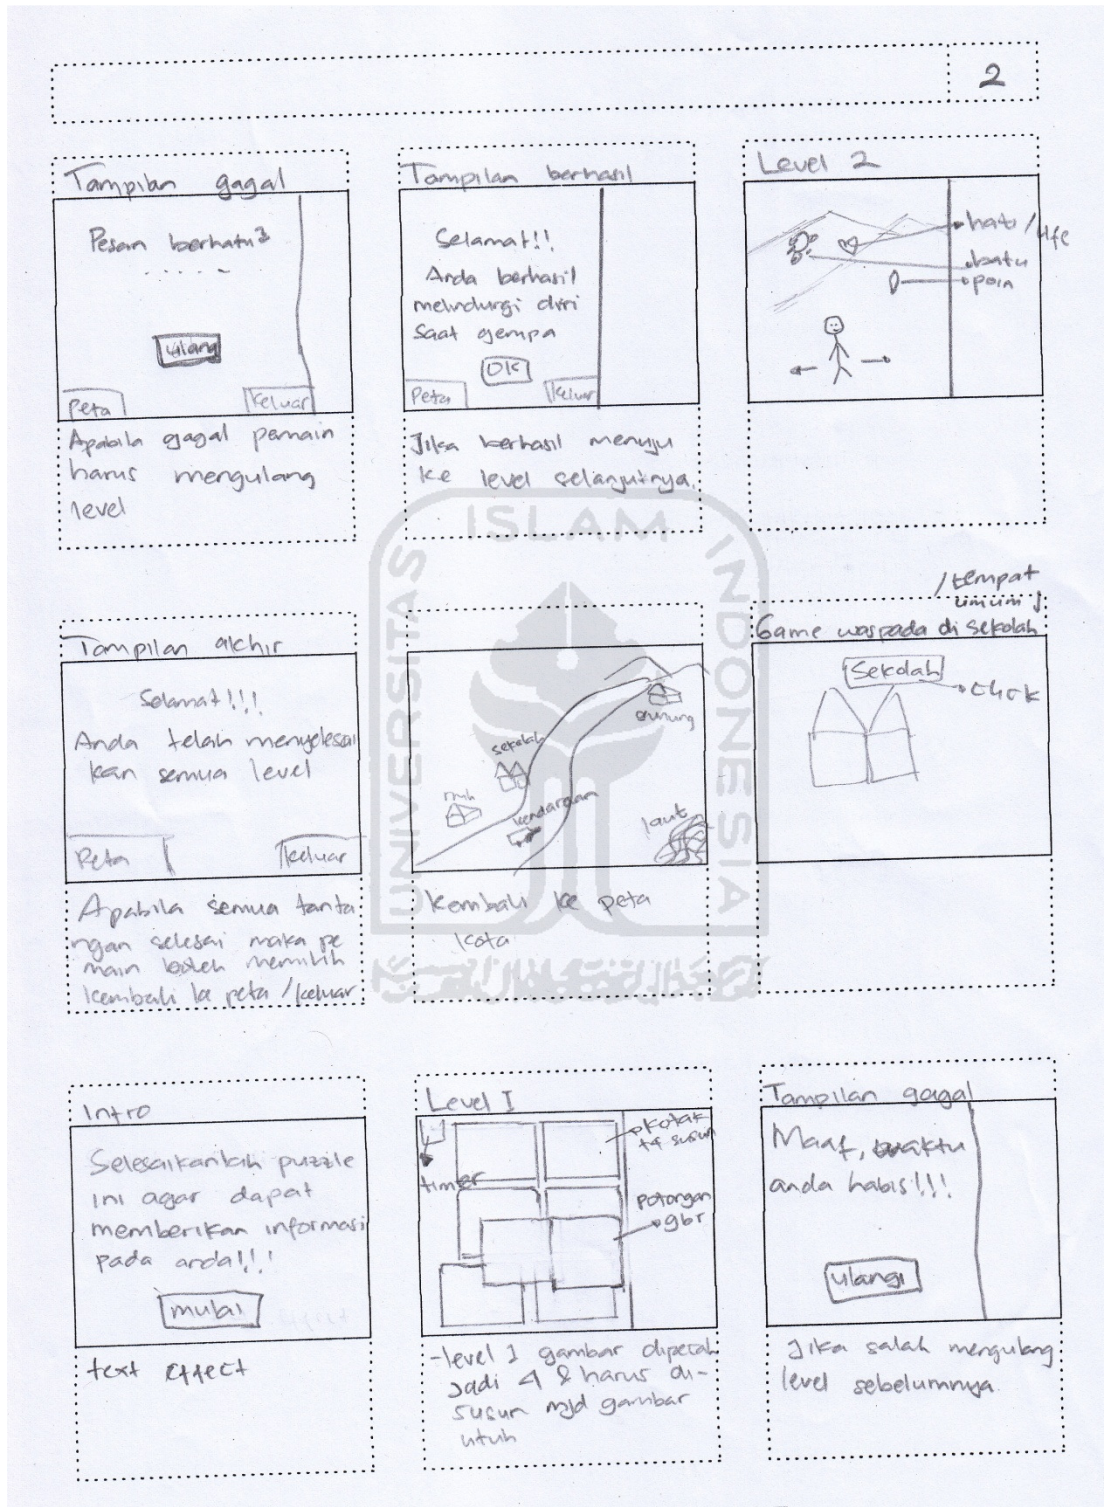 2
Tampilan gagal
Pesan berhati2
.....
Ulang
Peta
Keluar
Apabila gagal pemain
harus mengulang
level
Tampilan berhasil
Selamat!!
Anda berhasil
melindungi diri
saat gempa
OK
Peta
Keluar
Jika berhasil menuju
ke level selanjutnya.
Level 2
hati/life
batu
poin
Tampilan akhir
Selamat!!!
Anda telah menyelesai
kan semua level
Peta
Keluar
Apabila semua tanta
ngan selesai maka pe
main boleh memilih
kembali ke peta/keluar
gunung
sekolah
rmh
kendaraan
laut
Kembali ke peta
kota
/tempat
umum
Game waspada di sekolah
Sekolah
click
Intro
Selesaikanlah puzzle
ini agar dapat
memberikan informasi
pada anda!!!
mulai
text effect
Level I
timer
kotak
susun
potongan
gbr
-level 1 gambar dipecah
jadi 4 & harus di-
susun mjd gambar
utuh
Tampilan gagal
Maaf, waktu
anda habis!!!
ulangi
Jika salah mengulang
level sebelumnya.
UNIVERSITAS ISLAM INDONESIA